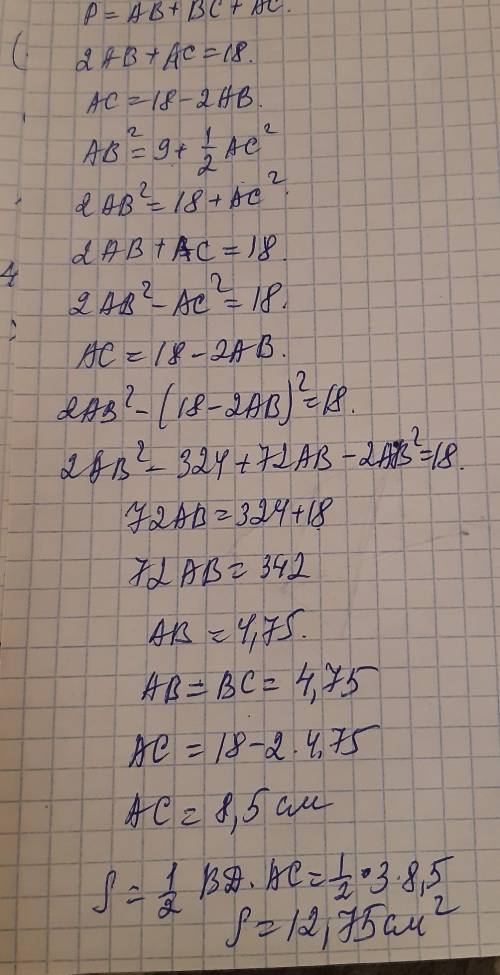 P = AB + BC + AC.
2AB + AC = 18.
AC = 18 - 2AB.
AB² = 9 + 1/2 AC²
2AB² = 18 + AC².
2AB + AC = 18.
2AB² - AC² = 18.
AC = 18 - 2AB.
2AB² - (18 - 2AB)² = 18.
2AB² - 324 + 72AB - 2AB² = 18.
72AB = 324 + 18
72AB = 342
AB = 4,75.
AB = BC = 4,75
AC = 18 - 2 · 4,75
AC = 8,5 см
S = 1/2 BD · AC = 1/2 · 3 · 8,5
S = 12,75 см²